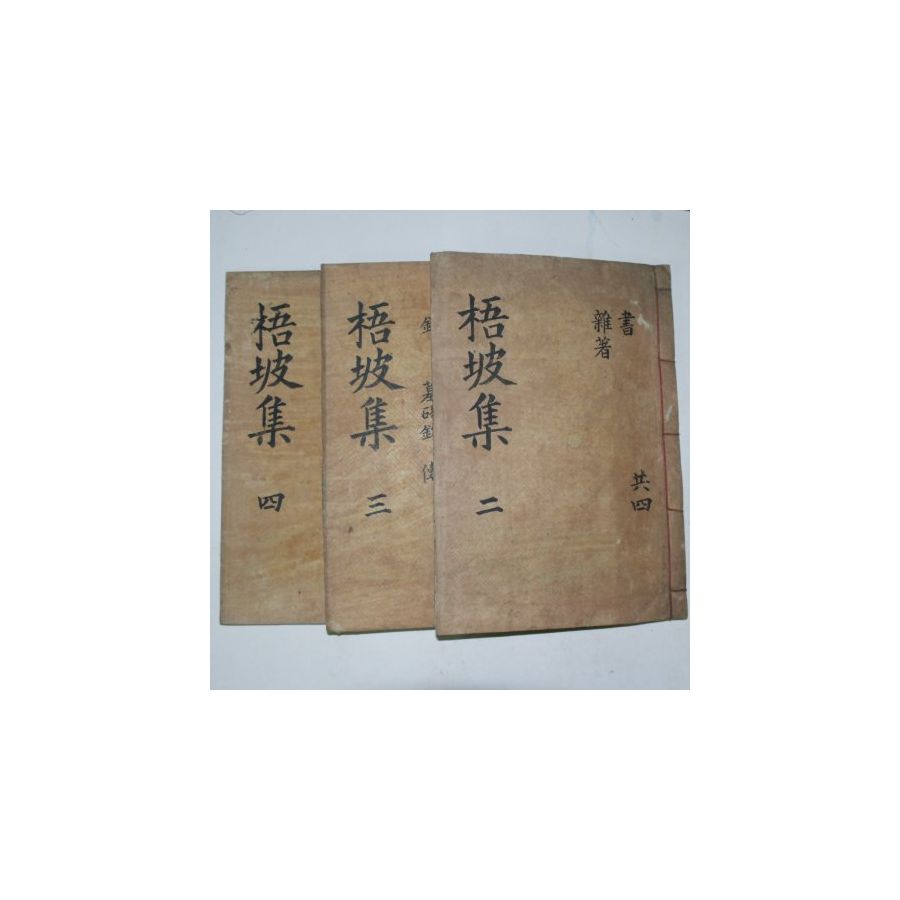 梧坡集 二
書
雜著
共四
梧坡集 三
梧坡集 四